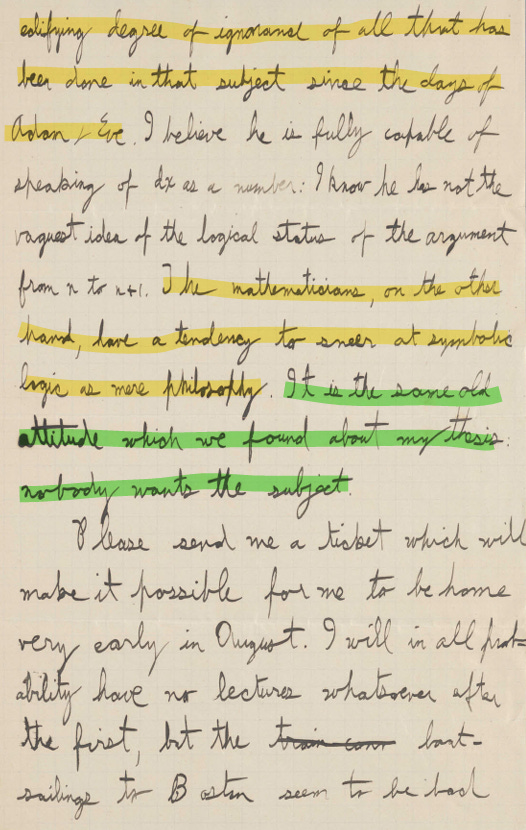 edifying degree of ignorance of all that has
been done in that subject since the days of
Adam & Eve. I believe he is fully capable of
speaking of dx as a number: I know he has not the
vaguest idea of the logical status of the argument
from n to n+1. The mathematicians, on the other
hand, have a tendency to sneer at symbolic
logic as mere philosophy. It is the same old
attitude which we found about my thesis:
nobody wants the subject.
Please send me a ticket which will
make it possible for me to be home
very early in August. I will in all prob-
ability have no lectures whatsoever after
the first, but the train conn boat-
sailings to Boston seem to be bad